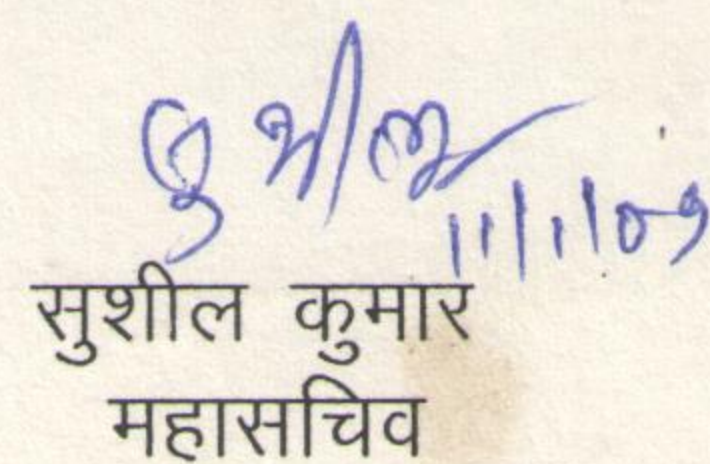 सुशील
11/1/09
सुशील कुमार
महासचिव